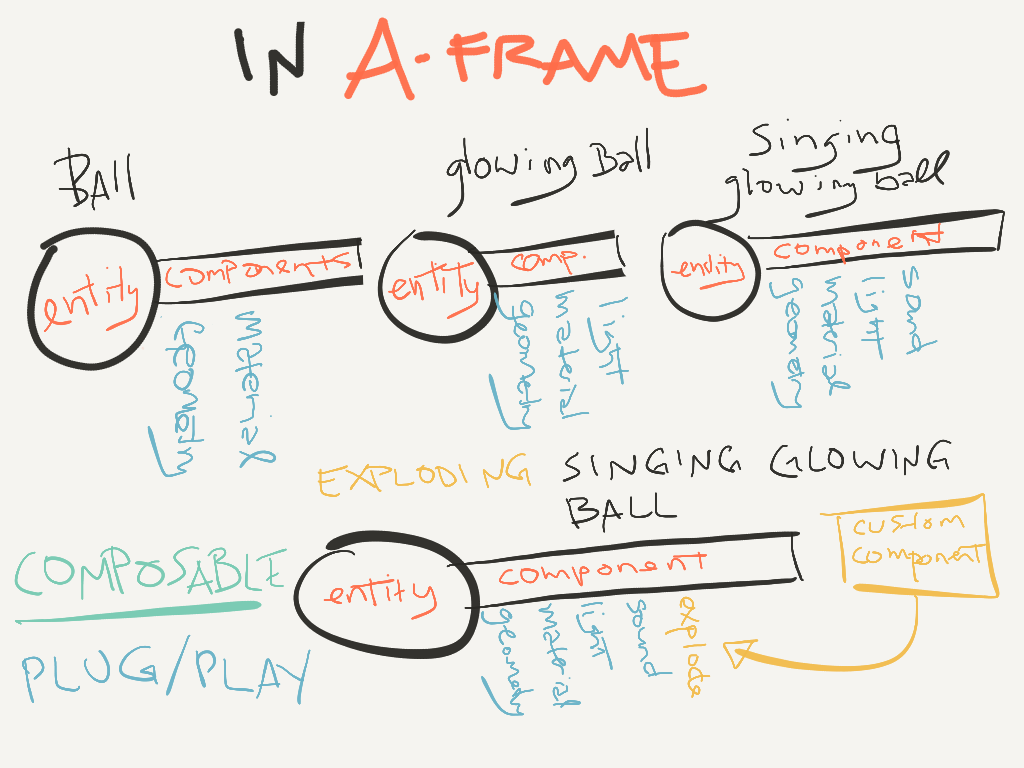 IN A-FRAME
BALL
entity
components
Geometry
material
glowing Ball
entity
comp.
geometry
material
light
singing
glowing ball
entity
component
geometry
material
light
sound
EXPLODING SINGING GLOWING
BALL
COMPOSABLE
PLUG/PLAY
entity
component
geometry
material
light
sound
explode
custom
component